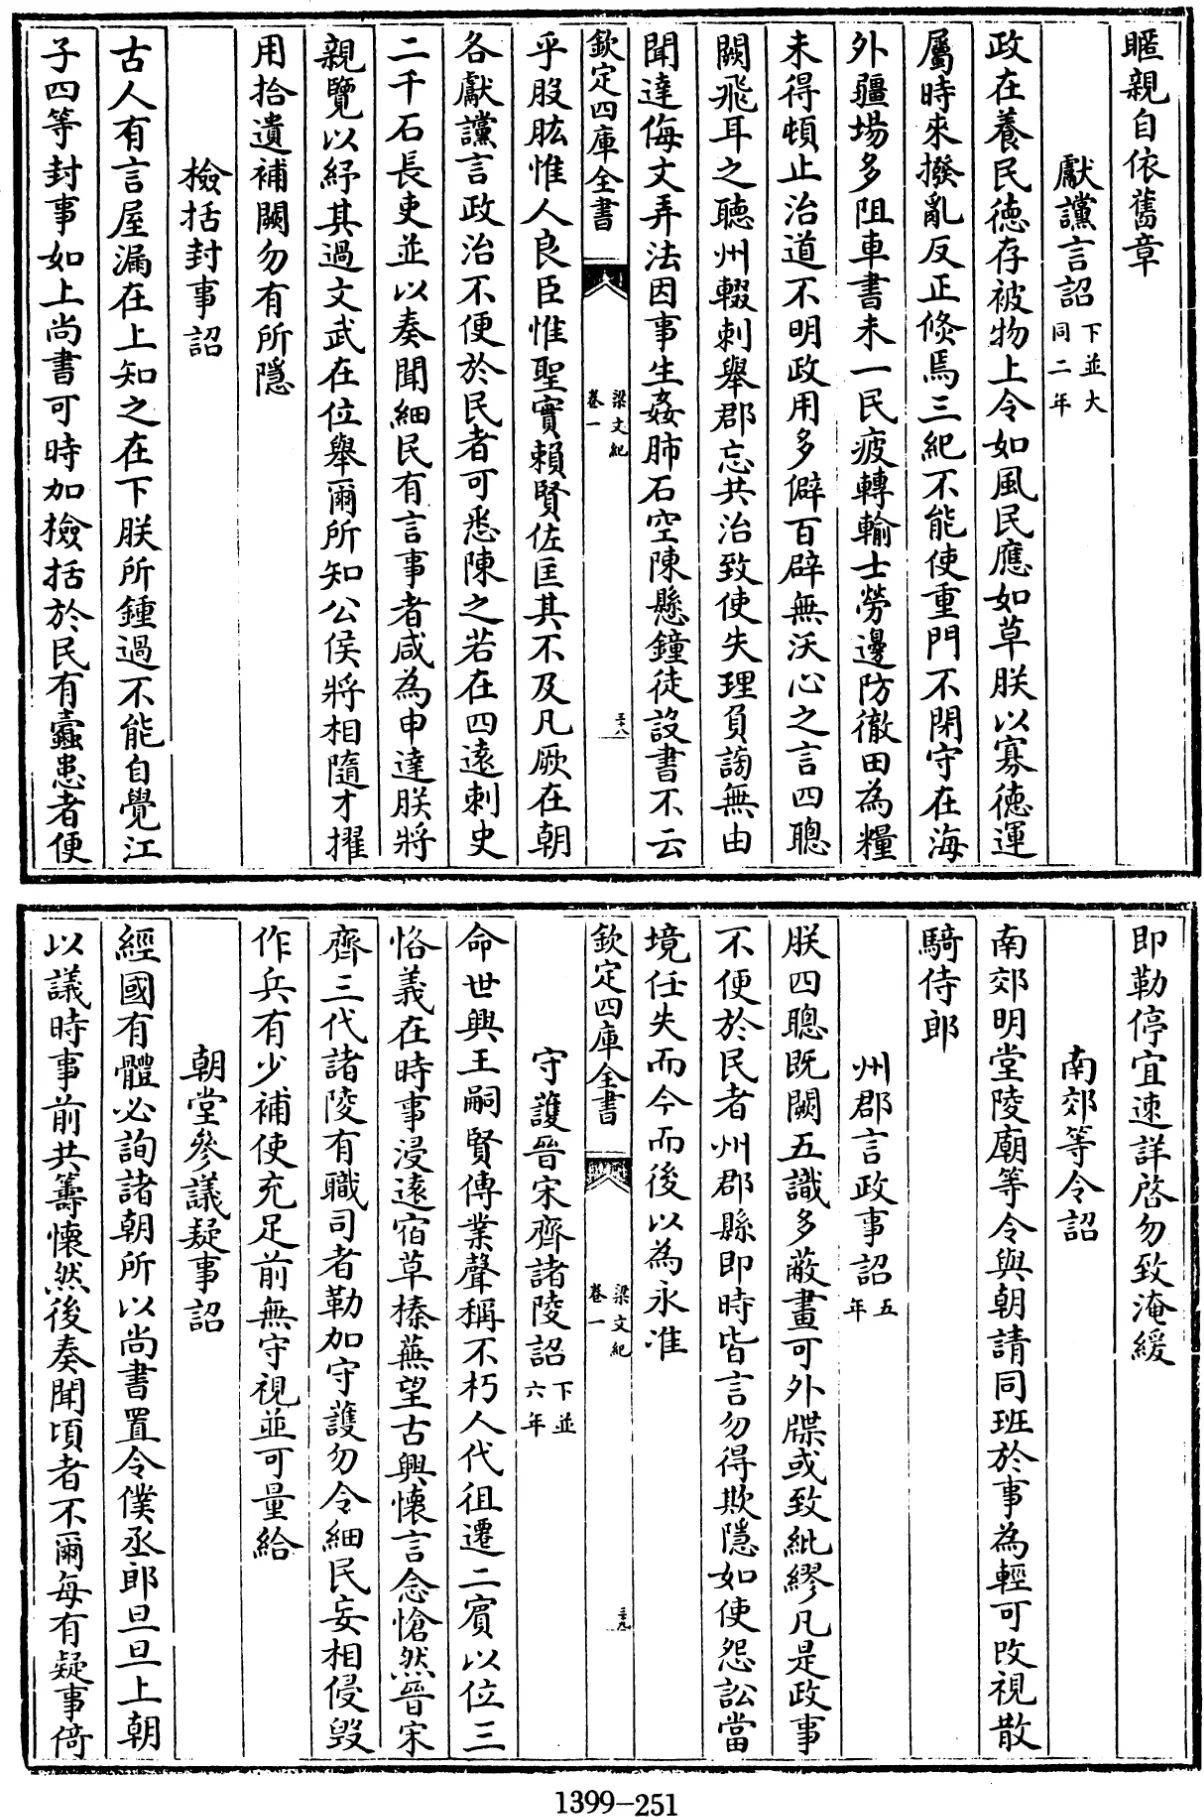 暱親自依舊章
獻讜言詔下並大同二年
政在養民德存被物上令如風民應如草朕以寡德運
屬時來撥亂反正倏焉三紀不能使重門不閉守在海
外疆埸多阻車書未一民疲轉輸士勞邊防徹田為糧
未得頓止治道不明政用多僻百辟無沃心之言四聰
闕飛耳之聽州輟刺舉郡忘共治致使失理負謗無由
聞達侮文弄法因事生姦肺石空陳懸鐘徒設書不云
欽定四庫全書 梁文紀卷一 三十八
乎股肱惟人良臣惟聖實賴賢佐匡其不及凡厥在朝
各獻讜言政治不便於民者可悉陳之若在四遠刺史
二千石長吏並以奏聞細民有言事者咸為申達朕將
親覽以紓其過文武在位舉爾所知公侯將相隨才擢
用拾遺補闕勿有所隱
檢括封事詔
古人有言屋漏在上知之在下朕所鍾過不能自覺江
子四等封事如上尚書可時加檢括於民有蠹患者便
即勒停宜速詳啓勿致淹緩
南郊等令詔
南郊明堂陵廟等令與朝請同班於事為輕可改視散
騎侍郎
州郡言政事詔五年
朕四聰既闕五識多蔽畫可外牒或致紕繆凡是政事
不便於民者州郡縣即時皆言勿得欺隱如使怨訟當
境任失而今而後以為永准
欽定四庫全書 梁文紀卷一 三十九
守護晉宋齊諸陵詔下並六年
命世興王嗣賢傳業聲稱不朽人代徂遷二賓以位三
恪義在時事浸遠宿草榛蕪望古興懷言念愴然晉宋
齊三代諸陵有職司者勒加守護勿令細民妄相侵毀
作兵有少補使充足前無守視並可量給
朝堂參議疑事詔
經國有體必詢諸朝所以尚書置令僕丞郎旦旦上朝
以議時事前共籌懷然後奏聞頃者不爾每有疑事倚
1399-251